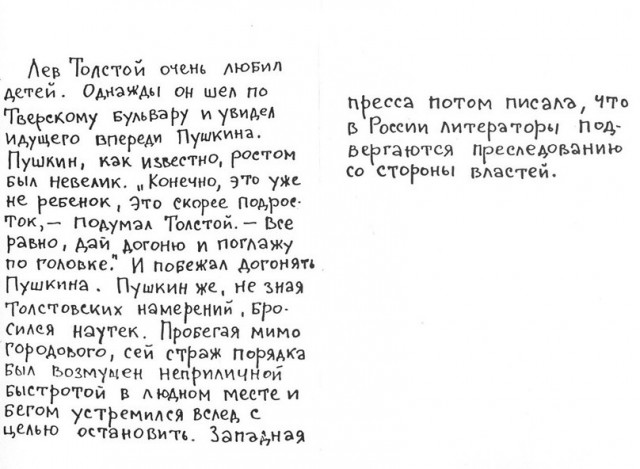 Лев Толстой очень любил
детей. Однажды он шел по
Тверскому бульвару и увидел
идущего впереди Пушкина.
Пушкин, как известно, ростом
был невелик. „Конечно, это уже
не ребенок, это скорее подрос-
ток, — подумал Толстой. — Все
равно, дай догоню и поглажу
по головке." И побежал догонять
Пушкина. Пушкин же, не зная
толстовских намерений, бро-
сился наутек. Пробегая мимо
городового, сей страж порядка
был возмущен неприличной
быстротой в людном месте и
бегом устремился вслед с
целью остановить. Западная
пресса потом писала, что
в России литераторы под-
вергаются преследованию
со стороны властей.